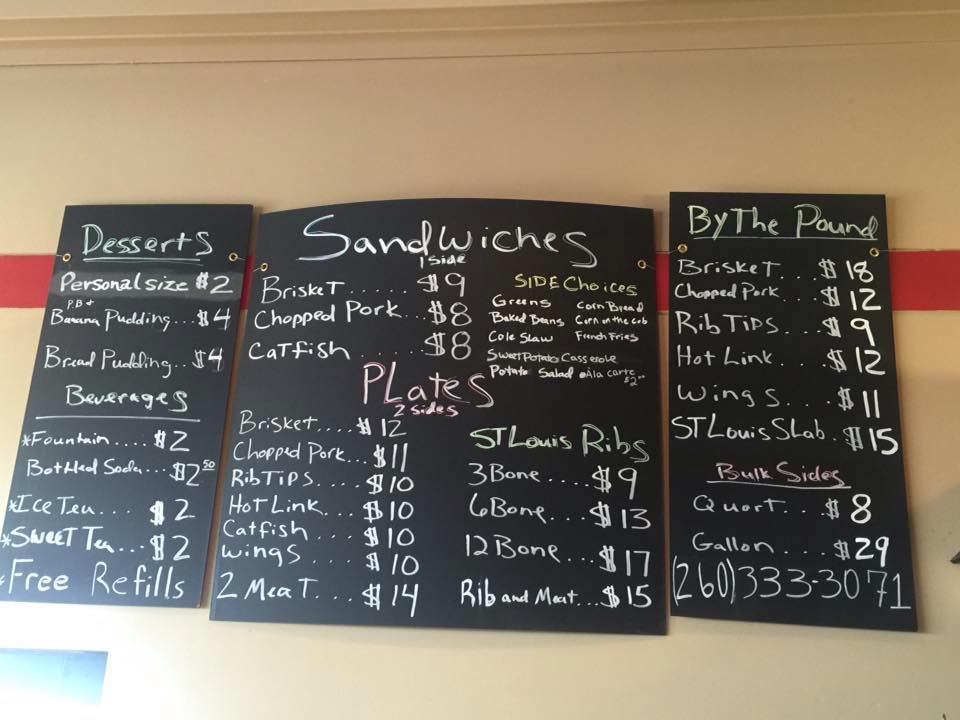 Desserts
Personal size $2
P.B +
Banana Pudding...$4
Bread Pudding...$4
Beverages
*Fountain....$2
Bottled Soda...$2.50
*Ice Tea...$2
*Sweet Tea...$2
*Free Refills
Sandwiches
1 side
Brisket......$9
Chopped Pork...$8
Catfish.....$8
SIDE Choices
Greens Corn Bread
Baked Beans Corn on the cob
Cole Slaw French Fries
Sweet Potato Casserole
Potato Salad •Ala carte $2.00
PLates
2 sides
Brisket....$12
Chopped Pork...$11
Rib Tips...$10
Hot Link...$10
Catfish...$10
Wings...$10
2 Meat...$14
ST Louis Ribs
3 Bone...$9
6 Bone...$13
12 Bone...$17
Rib and Meat...$15
By The Pound
Brisket...$18
Chopped Pork..$12
Rib Tips...$9
Hot Link...$12
Wings...$11
ST Louis Slab.$15
Bulk Sides
Quart...$8
Gallon....$29
(260)333-3071